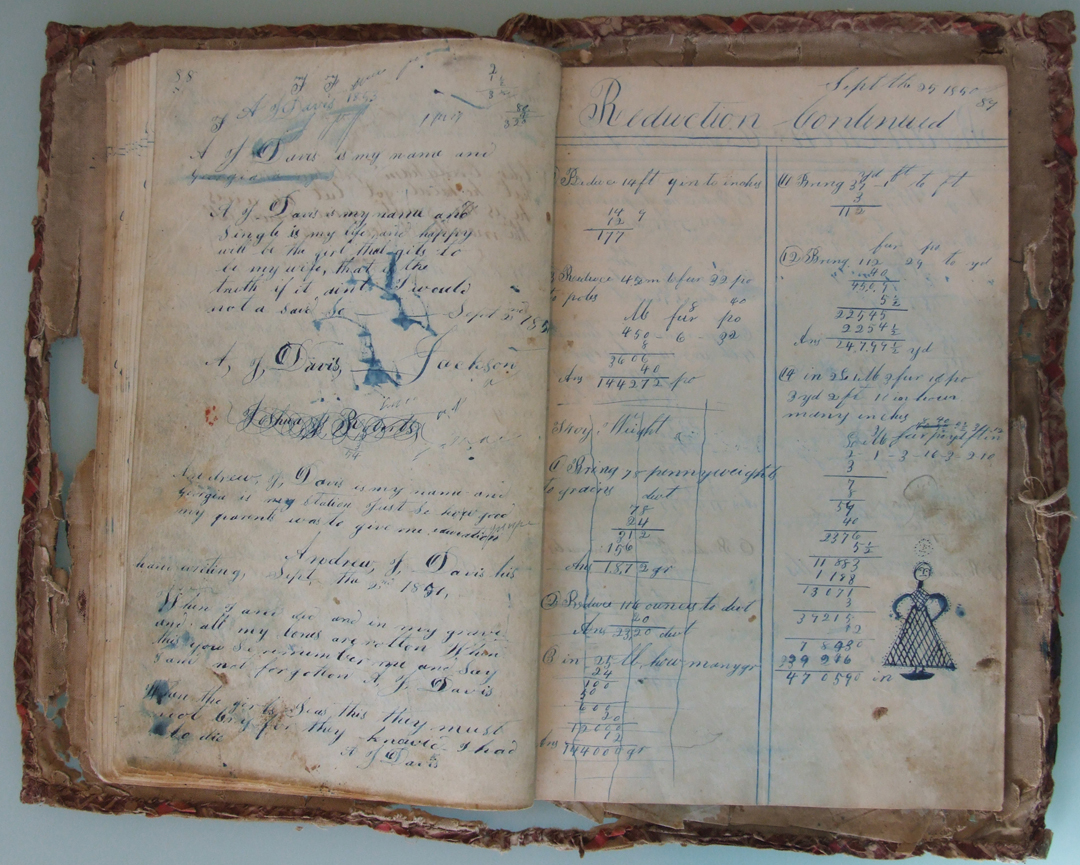 88
A J Davis 1850
A J Davis is my name and
Georgea
A J Davis is my name and
Single is my life, and happy
will be the girl that gits to
be my wife, that is the
truth if it aint I would
not a said so
Sept 2nd 185
A, J, Davis, Jackson
Joshua J Roberts,
Andrew, J, Davis is my name and
Georgea is my station Just So how good
my parents was to give me education
Andrew, J. Davis his
hand writing, Sept, the 2nd 1850,
When I am die and in my grave
and all my bons are rotten When
this you Se remember me and Say
I am not forgotten A, J. Davis
When the girls Seas this they must
for they knowed I had
to die
A J Davis
Sept the 25 1850
89
Reduction Continued
Reduce 14ft 9 in to inches
14 9
12
177
Reduce 450m 6 fur 32 po
to poles
8 40
M fur po
450 - 6 - 32
8
3606
40
Ans 144272 po
Troy Weight
(1 Bring 78 pennyweights
to grains dwt
78
24
312
156
Ans 1872 gr
(2 Reduce 116 ounces to dwt
20
Ans 2320 dwt
in 25 lb how many gr
24
100
50
600
20
12000
12
Ans 144000 gr
yd ft
11 Bring 37 - 1 to ft
3
112
fur po
(12 Bring 112 29 to yd
40
4509
5½
22545
2254½
Ans 24,799½ yd
in 2 Le 1 M 3 fur 16 po
3 yd 2 ft 10 in how
many inches
2 - 1 - 3 - 16 - 3 - 2 10
3
7
8
59
40
2376
5½
11 883
1 188
13 071
3
39215
12
7 8430
392 216
470590 in